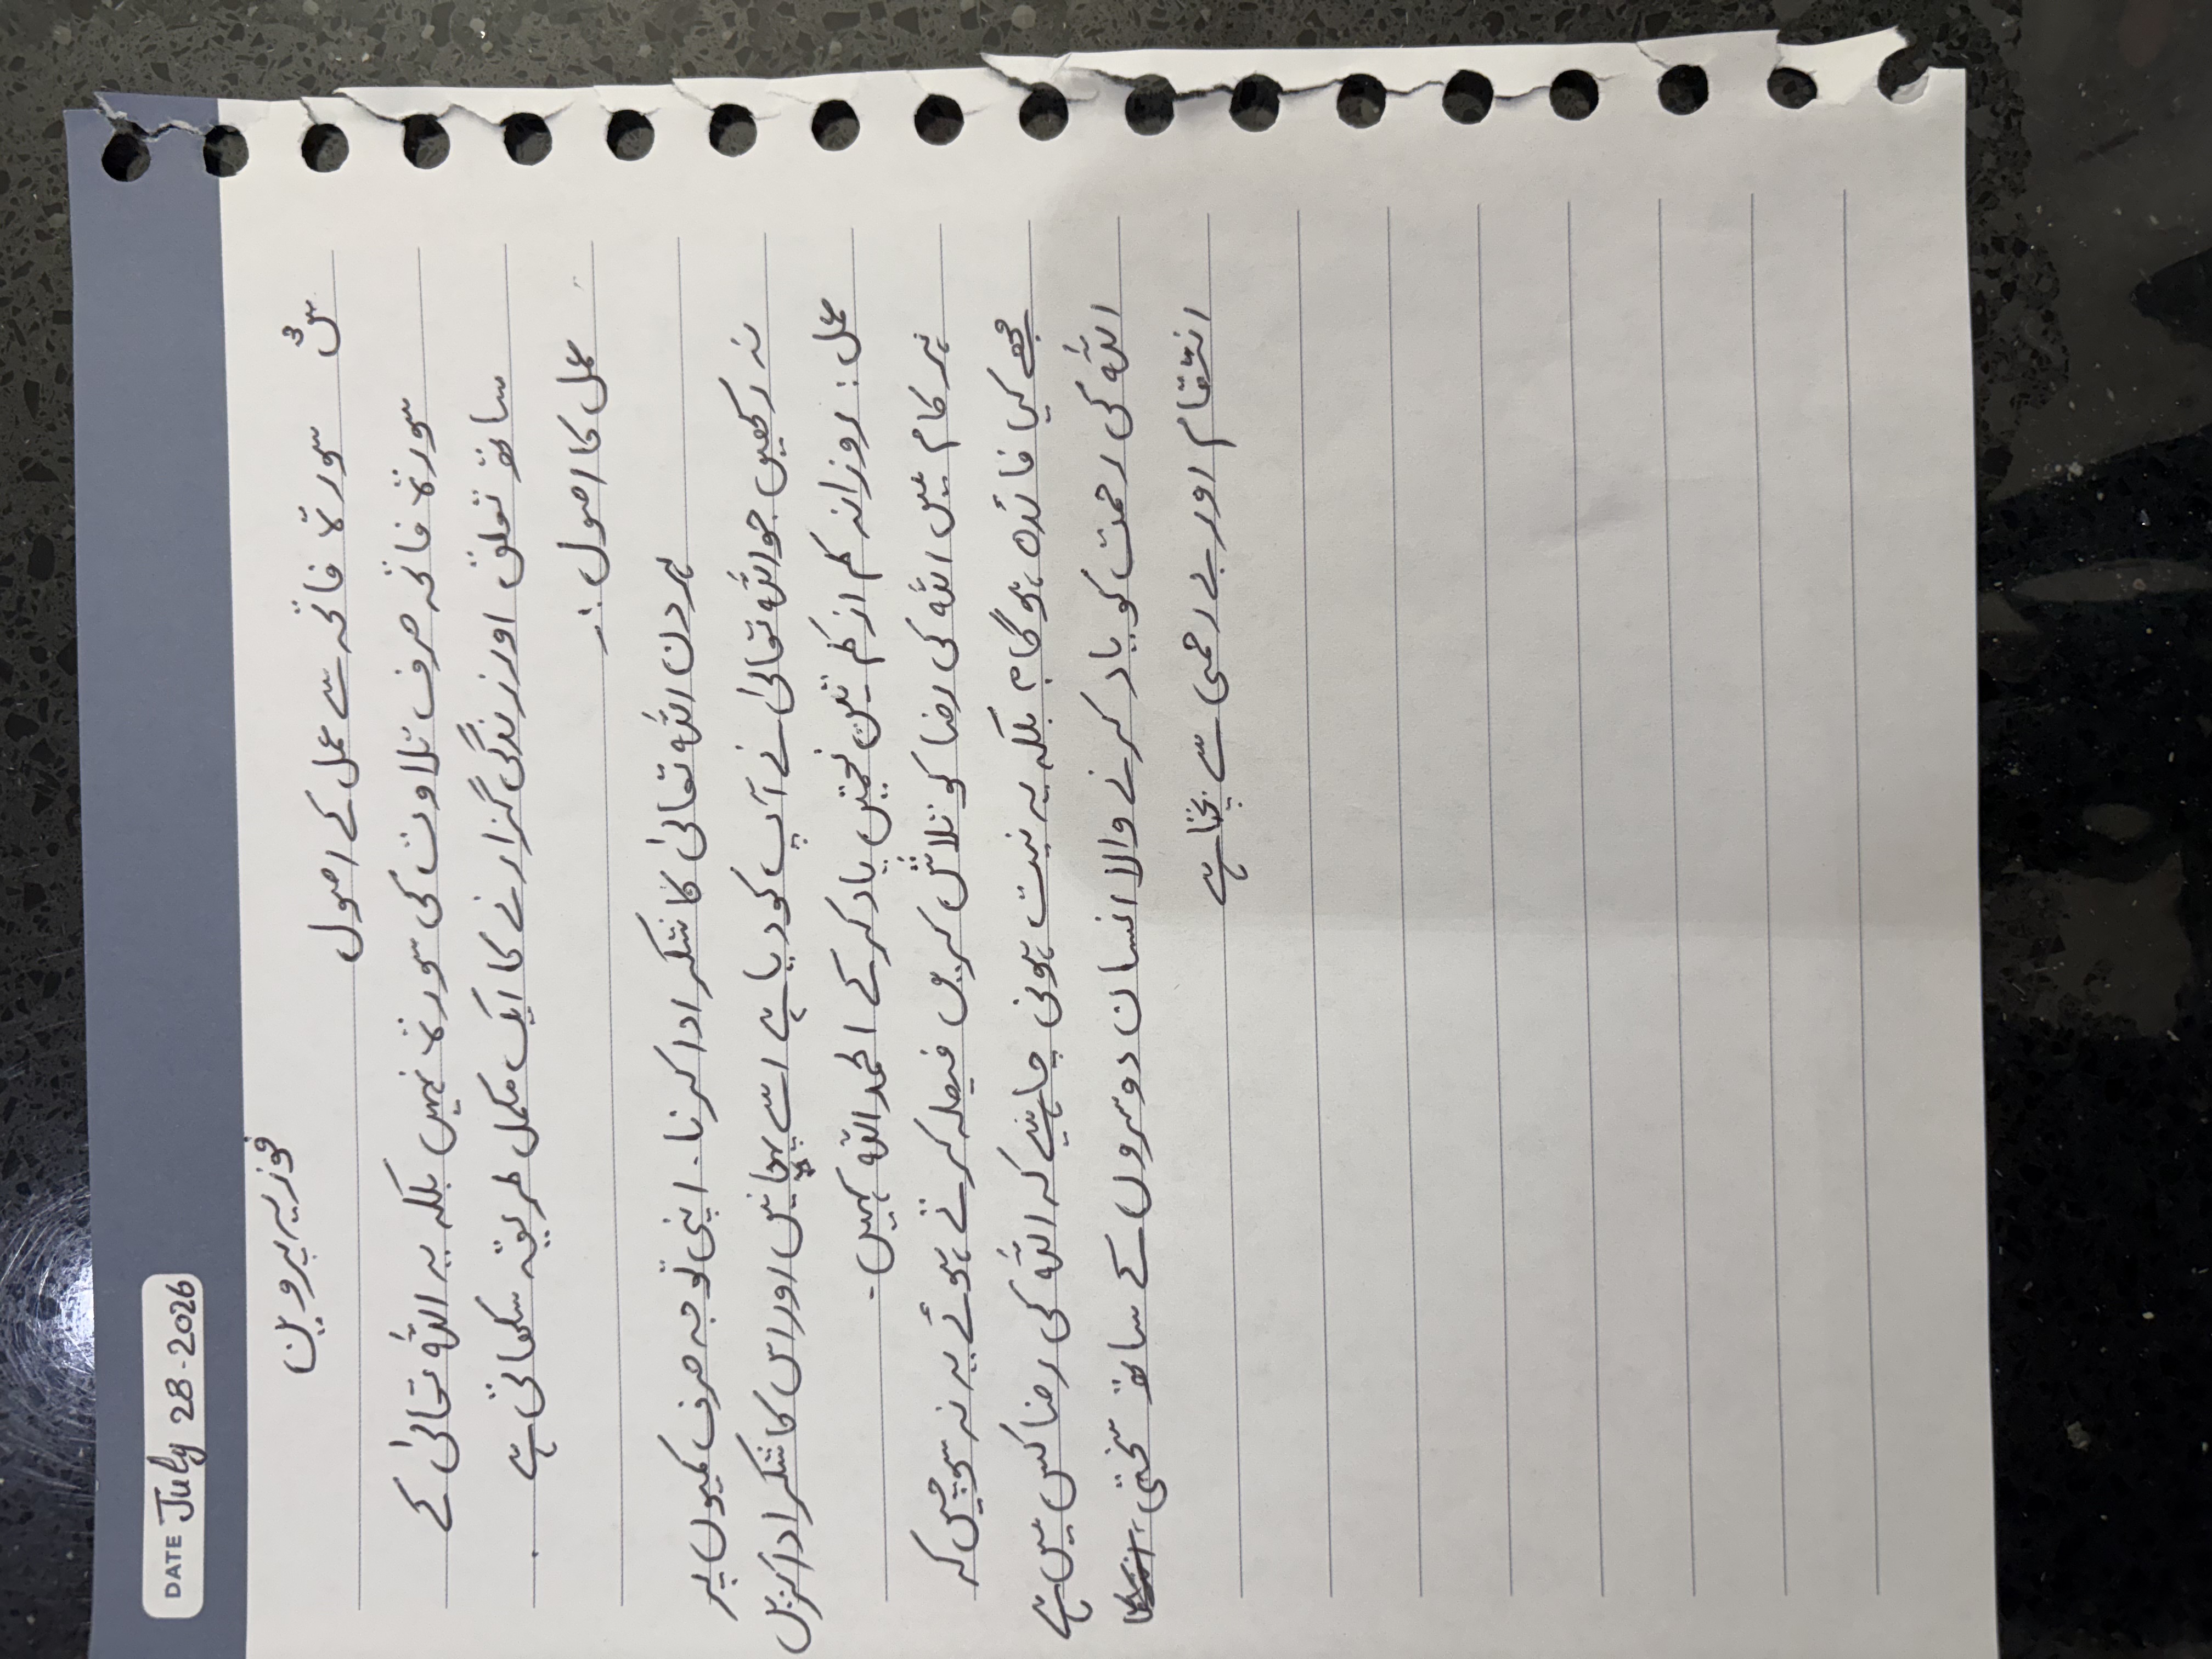 DATE July 28-2026
فوزیہ پروین
س۳ سورۃ فاتحہ سے عمل کے اصول
سورۃ فاتحہ صرف تلاوت کی سورۃ نہیں بلکہ یہ اللہ تعالیٰ کے
ساتھ تعلق اور زندگی گزارنے کا ایک مکمل طریقہ سکھاتی ہے
عمل کا اصول :۔
ہر دن اللہ تعالیٰ کا شکر ادا کرنا۔ اپنی توجہ صرف کمیوں پر
نہ رکھیں جو اللہ تعالیٰ نے آپ کو دیا ہے اسے پہچانیں اور اس کا شکر ادا کریں
عمل : روزانہ کم از کم تین نعمتیں یاد کر کے الحمد اللہ کہیں۔
ہر کام میں اللہ کی رضا کو تلاش کریں فیصلہ کرتے ہوئے یہ نہ سوچیں کہ
مجھے کیا فائدہ ہو گا م بلکہ یہ نیت ہونی چاہئیے کہ اللہ کی رضا کس میں ہے
اللہ کی رحمت کو یاد کرنے والا انسان دوسروں کے ساتھ سختی
انتقام اور بے رحمی سے بچتا ہے